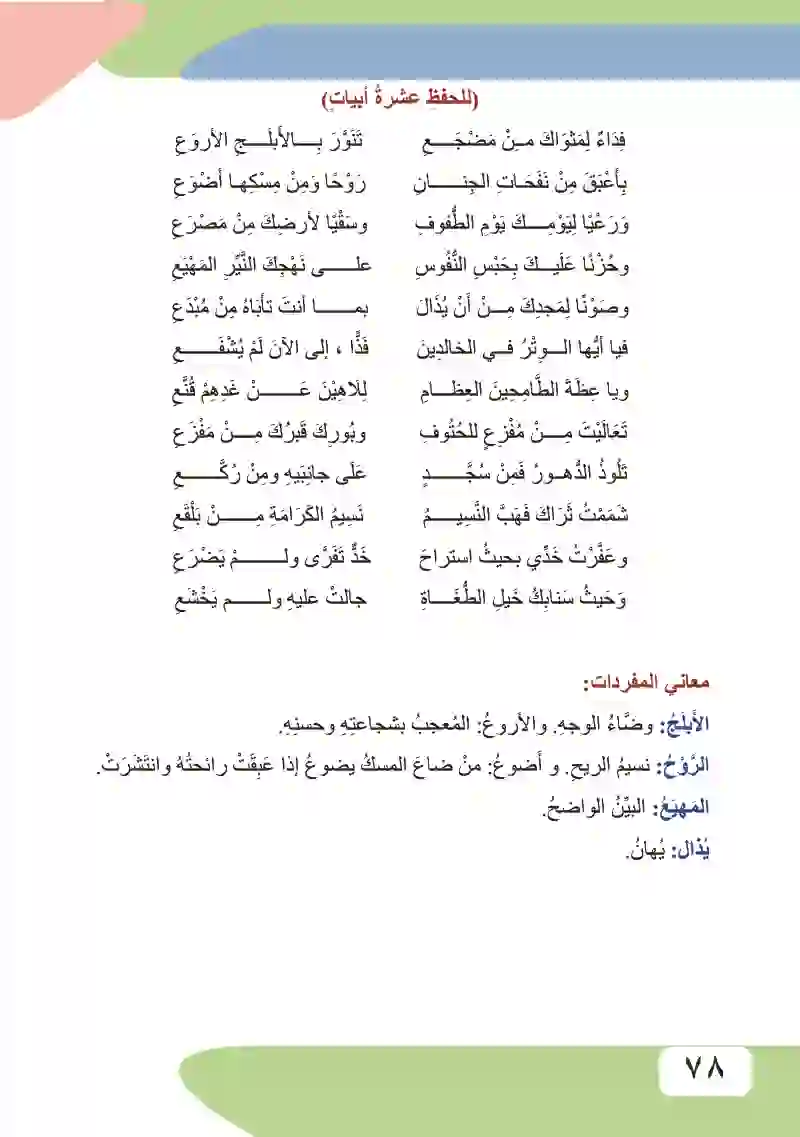 (للحفظِ عشرةُ أبياتٍ)
فِدَاءٌ لِمَثْوَاكَ مـنْ مَضْجَـــعِ تَنَوَّرَ بِـــالأبلَـــجِ الأروَعِ
بِأَعْبَقَ مِنْ نَفَحَاتِ الجِنـــانِ رَوْحًا وَمِنْ مِسْكِها أضْوَعِ
وَرَعْيًا لِيَوْمِـــكَ يَوْمِ الطُّفوفِ وسَقْيًا لأرضِكَ مِنْ مَصْرَعِ
وحُزْنًا عَلَيـــكَ بِحَبْسِ النُّفُوسِ علـــى نَهْجِكَ النَّيِّرِ المَهْيَعِ
وصَوْنًا لِمَجدِكَ مِـــنْ أَنْ يُذَالَ بمـــا أنتَ تأبَاهُ مِنْ مُبْدَعِ
فيا أيُّها الـــوِتْرُ فـي الخالدِينَ فَذًّا ، إلى الآنَ لَمْ يُشْفَـــعِ
ويا عِظَةَ الطَّامِحِينَ العِظَـامِ لِلَاهِيْنَ عَـــنْ غَدِهِمْ قُنَّعِ
تَعَالَيْتَ مِـــنْ مُفْزِعٍ للحُتُوفِ وبُورِكَ قَبرُكَ مِـــنْ مَفْزَعِ
تَلُوذُ الدُّهورُ فَمِنْ سُجَّـــدٍ عَلَى جانِبَيهِ ومِنْ رُكَّـــعِ
شَمَمْتُ ثَرَاكَ فَهَبَّ النَّسِيـــمُ نَسِيمُ الكَرَامَةِ مِـــنْ بَلْقَعِ
وعَفَّرْتُ خَدِّي بحيثُ استراحَ خَدٌّ تَفَرَّى ولـــمْ يَضْرَعِ
وَحَيثُ سَنابِكُ خَيلِ الطُّغَـاةِ جالتْ عليهِ ولـــم يَخْشَعِ
معاني المفردات:
الأَبلَجُ: وضَّاءُ الوجهِ. والأروعُ: المُعجبُ بشجاعتهِ وحسنِهِ.
الرَّوْحُ: نسيمُ الريحِ. و أَضوعُ: منْ ضاعَ المسكُ يضوعُ إذا عَبِقَتْ رائحتُهُ وانتَشَرَتْ.
المَهيَعُ: البيِّنُ الواضحُ.
يُذال: يُهانُ.
٧٨